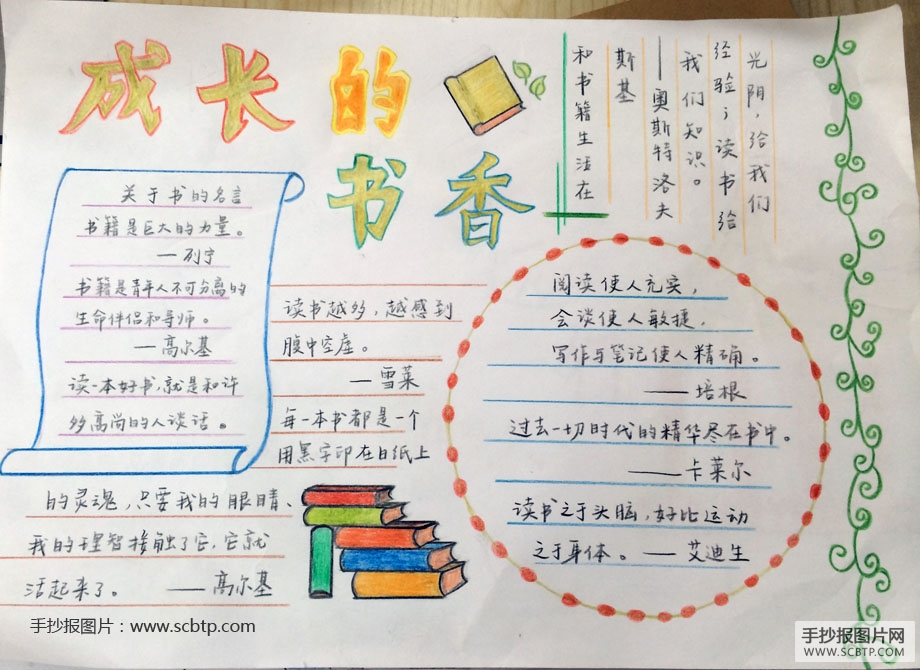 成长的
书香
光阴，给我们
经验；读书给
我们知识。
——奥斯特洛夫
斯基
和书籍生活在
关于书的名言
书籍是巨大的力量。
—列宁
书籍是青年人不可分离的
生命伴侣和导师。
—高尔基
读一本好书，就是和许
多高尚的人谈话。
读书越多，越感到
腹中空虚。
—雪莱
每一本书都是一个
用黑字印在白纸上
的灵魂，只要我的眼睛、
我的理智接触了它，它就
活起来了。 ——高尔基
阅读使人充实，
会谈使人敏捷，
写作与笔记使人精确。
——培根
过去一切时代的精华尽在书中。
——卡莱尔
读书之于头脑，好比运动
之于身体。—艾迪生
手抄报图片：www.scbtp.com
手抄报图片网
WWW.SCBTP.COM